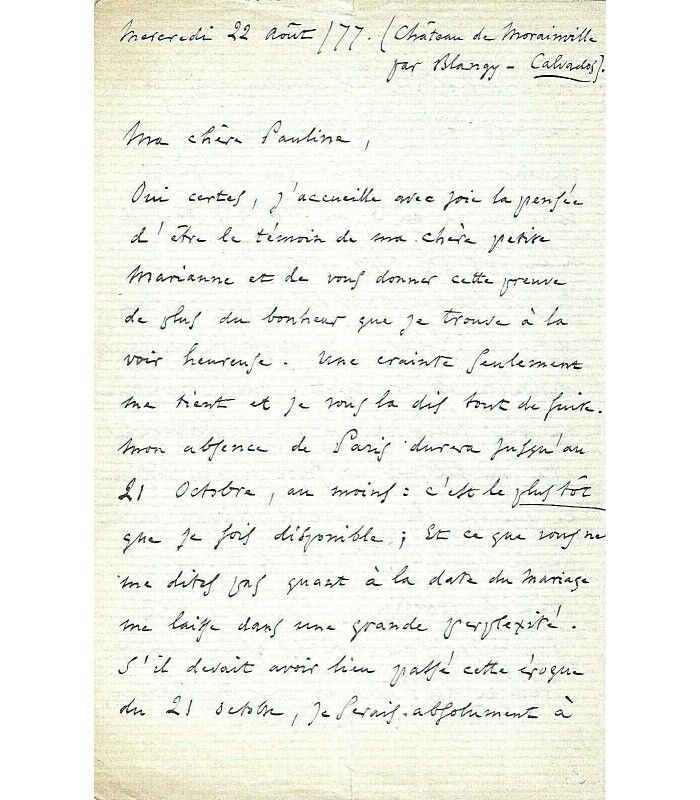 Mercredi 22 Août /77. (Château de Morainville
par Blangy – Calvados).
Ma chère Pauline,
Oui certes, j'accueille avec joie la pensée
d'être le témoin de ma chère petite
Marianne et de vous donner cette preuve
de plus du bonheur que je trouve à la
voir heureuse. Une crainte seulement
me tient et je vous la dis tout de suite.
Mon absence de Paris durera jusqu'au
21 Octobre, au moins : c'est le plus tôt
que je sois disponible ; Et ce que vous ne
me dites pas quant à la date du mariage
me laisse dans une grande perplexité.
S'il devait avoir lieu passé cette époque
du 21 octobre, je serais absolument à